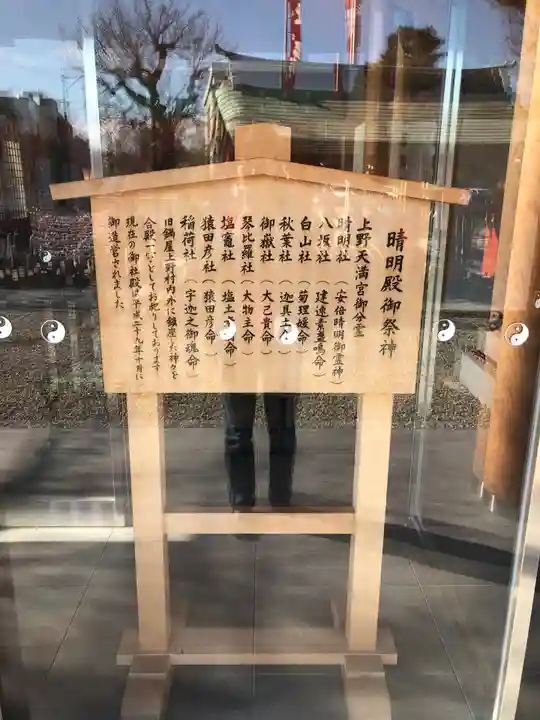 晴明殿御祭神
上野天満宮御分霊
晴明社（安倍晴明御霊神）
八坂社（建速素盞鳴命）
白山社（菊理媛命）
秋葉社（迦具土命）
御嶽社（大己貴命）
琴比羅社（大物主命）
塩竈社（塩土老翁命）
猿田彦社（猿田彦命）
稲荷社（宇迦之御魂命）
旧鍋屋上野村内外に鎮座した神々を
合殿でとしてお祀りしております
現在の御社殿は平成二十九年十月に
御造営されました